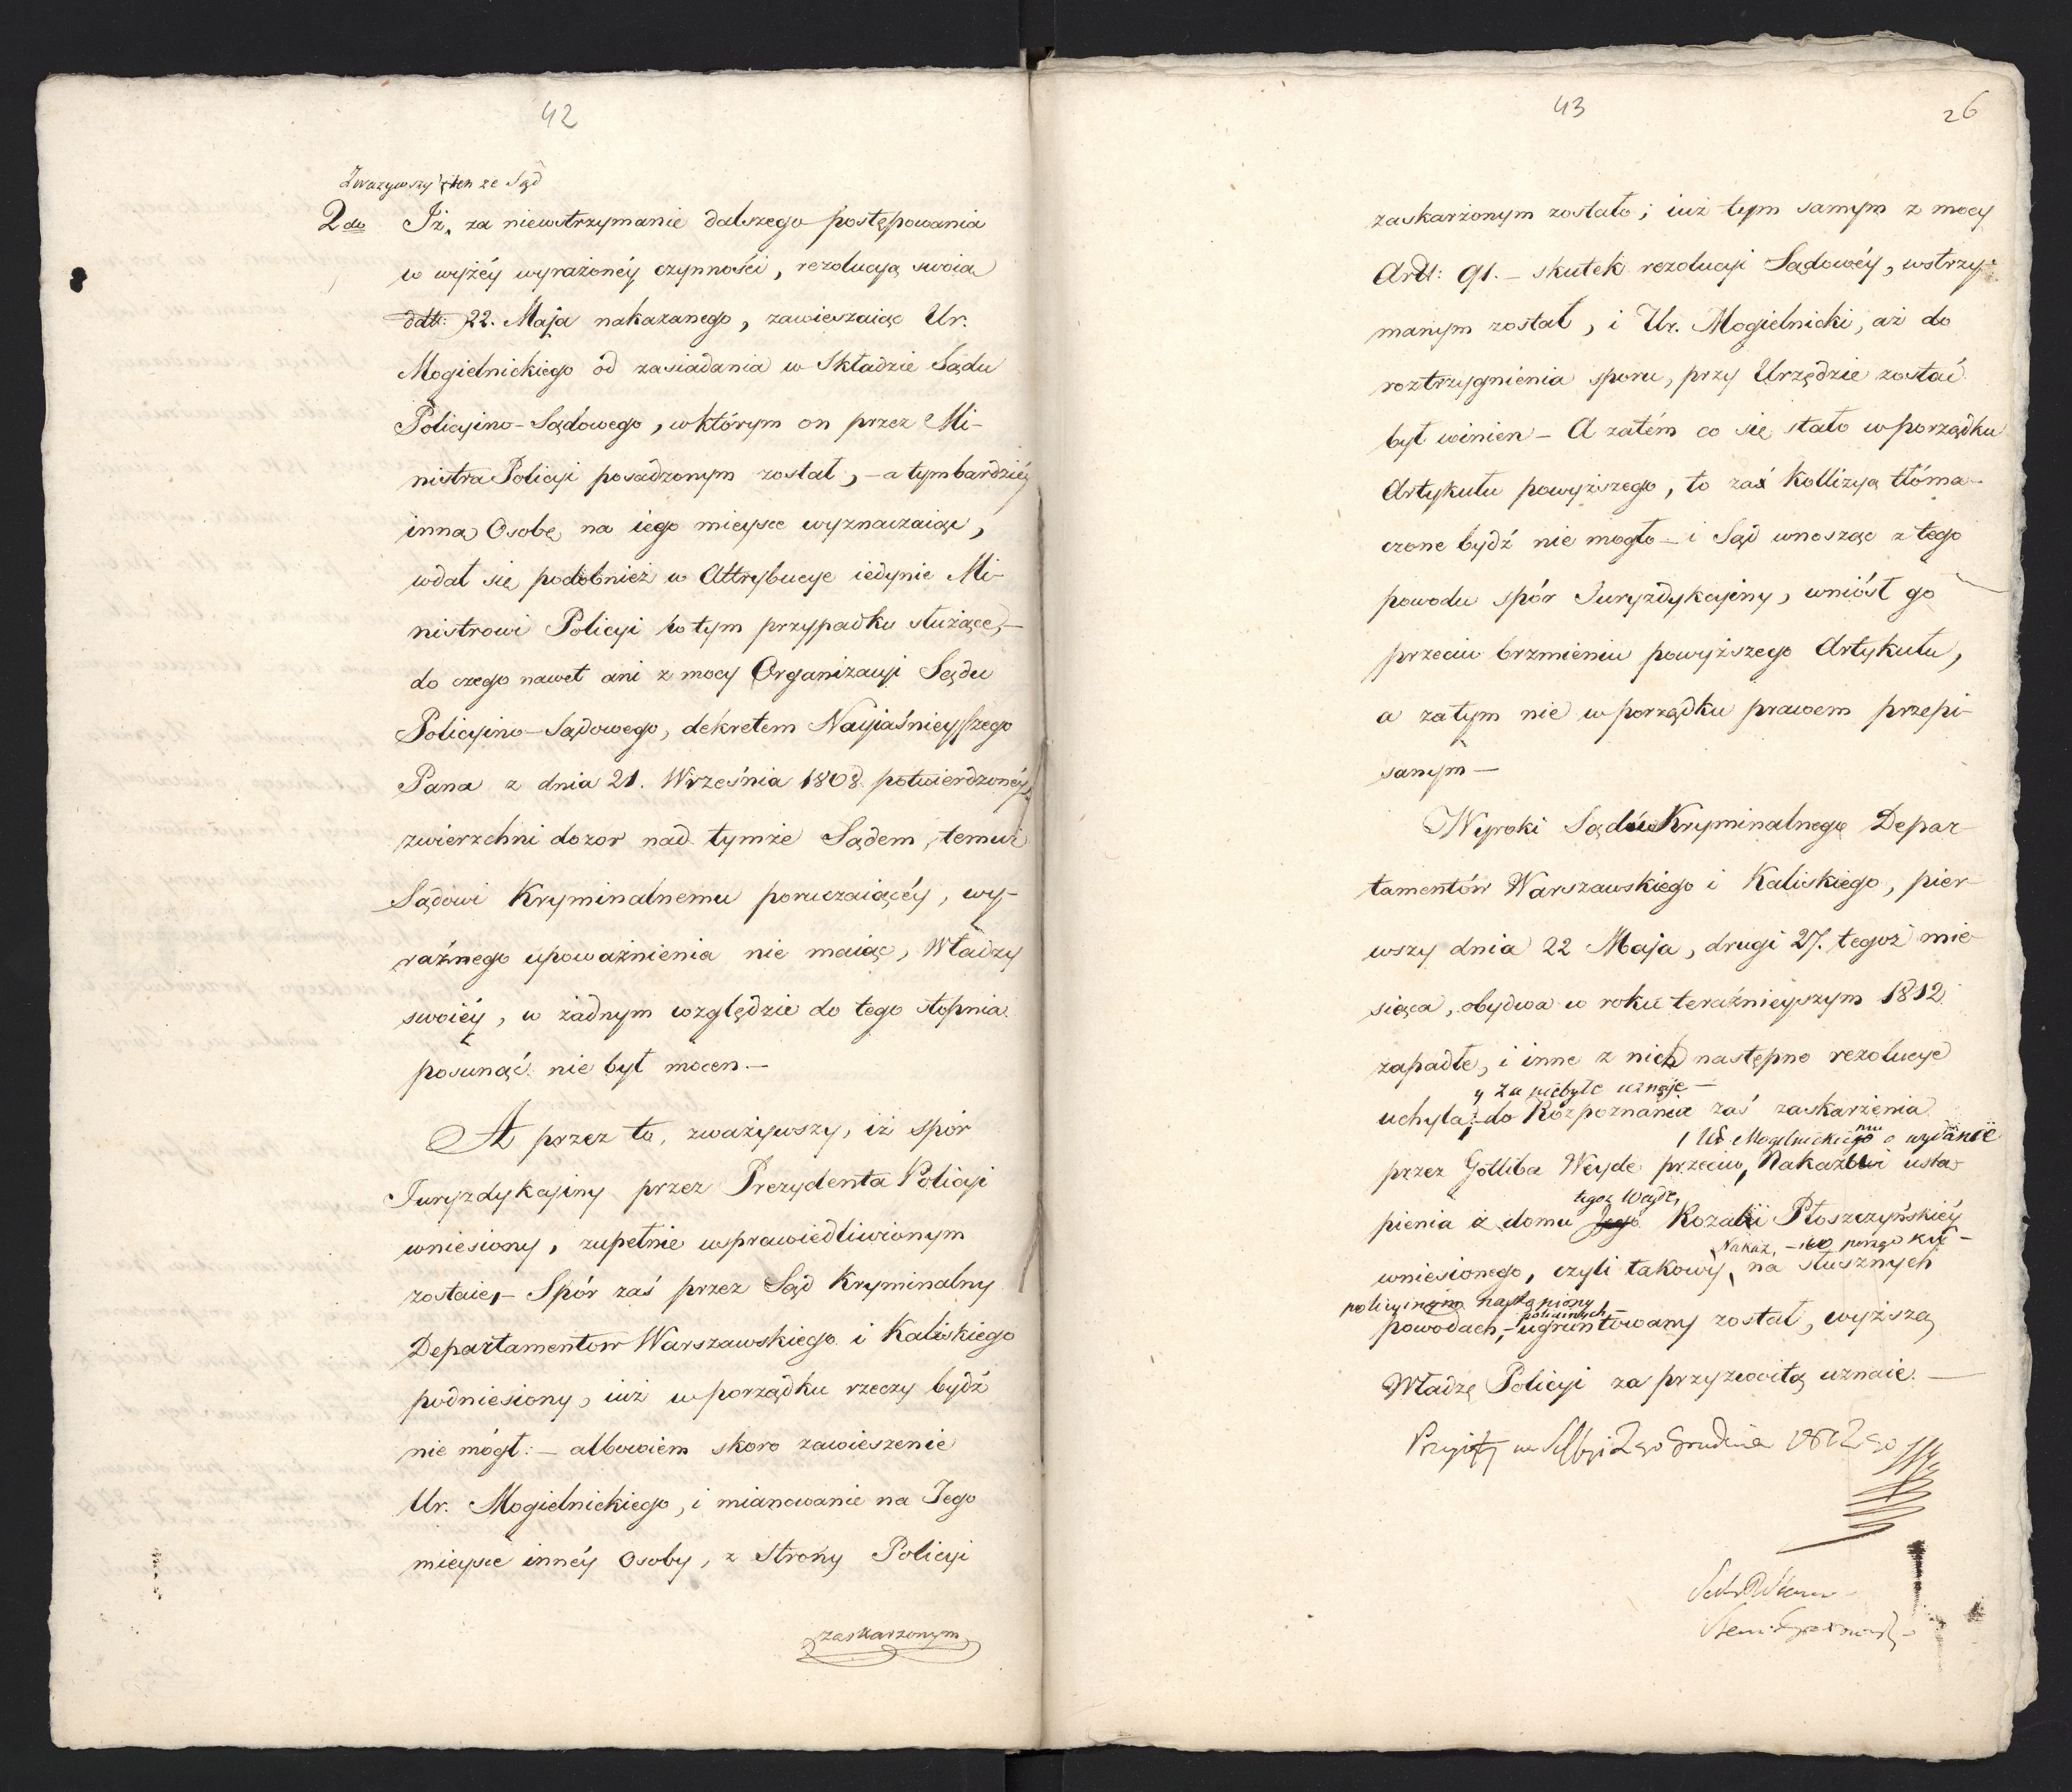 42
Zważywszy że Sąd
2do Iż, za niewstrzymanie dalszego postępowania
w wyżéy wyrażonéy czynności, rezolucyą swoią
22. Maja nakazanego, zawieszaiąc Ur.
Mogielnickiego od zasiadania w Składzie Sądu
Policyino-Sądowego, w którym on przez Mi-
nistra Policyi posadzonym został, - a tymbardziéy
inną Osobę na iego mieysce wyznaczaiąc,
wdał się podobnież w Attrybucye iedynie Mi-
nistrowi Policyi w tym przypadku służące, -
do czego nawet ani z mocy Organizacyi Sądu
Policyino-Sądowego, dekretem Nayiaśnieyszego
Pana z dnia 21. Września 1808. potwierdzonéy,
zwierzchni dozor nad tymże Sądem, temuż
Sądowi Kryminalnemu poruczaiącéy, wy-
raźnego upoważnienia nie maiąc, Władzy
swoiéy, w żadnym względzie do tego stopnia
posunąć nie był mocen -
A przez to, zważywszy, iż spór
Juryzdykcyiny przez Prezydenta Policyi
wniesiony, zupełnie usprawiedliwionym
zostaie, - Spór zaś przez Sąd Kryminalny
Departamentow Warszawskiego i Kaliskiego
podniesiony, iuż w porządku rzeczy bydź
nie mógł: - albowiem skoro zawieszenie
Ur. Mogielnickiego, i mianowanie na Jego
mieysce innéy Osoby, z Strony Policyi
zaskarżonym
43
26
zaskarżonym zostało; iuż tym samym z mocy
Art: 91. - skutek rezolucyi Sądowéy, wstrzy-
manym został, i Ur. Mogielnicki, aż do
roztrzygnienia sporu, przy Urzędzie zostać
był winien - A zatém co się stało w porządku
Artykułu powyższego, to zaś Kollizyą tłóma-
czone bydź nie mogło - i Sąd wnosząc z tego
powodu spór Juryzdykcyiny, wniósł go
przeciw brzmieniu powyższego Artykułu,
a zatym nie w porządku prawem przepi-
sanym -
Wyroki Sądu Kryminalnego Depar-
tamentów Warszawskiego i Kaliskiego, pier-
wszy dnia 22 Maja, drugi 27. tegoż mie-
siąca, obydwa w roku teraźnieyszym 1812
zapadłe, i inne z nich następne rezolucye
y za niebyłe uznaje -
uchyla; - do Rozpoznania zaś zaskarżenia
Ur Mogelnickiemu o wydanie
przez Gottliba Weyde przeciw, Nakazowi ustą-
tegoż Weyde,
pienia z domu Jego Rozalii Płoszczyńskiéy
Nakaz,
wniesionego, czyli takowy, na słusznych
policyinych
powodach, - ugruntowany został, wyższą
Władzę Policyi za przyzwoitą uznaie. -
Przyięty na Sessyi 2go Grudnia 1812go